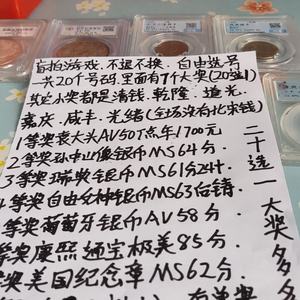 盲拍游戏.不退不换.自由选号
一共20个号码.里面有7个大奖(20选1)
其它小奖都是清钱.乾隆.道光.
嘉庆.咸丰.光绪(全场没有北宋钱)
1等奖袁大头AV50T点年1700元
2等奖孙中山像银币MS64分.
3等奖瑞典银币MS61分24
4等奖自由女神银币MS63台铸.
等奖葡萄牙银币AV58分.
等奖康熙通宝极美85分.
奖美国纪念章MS62分.
二十选一
大奖多多